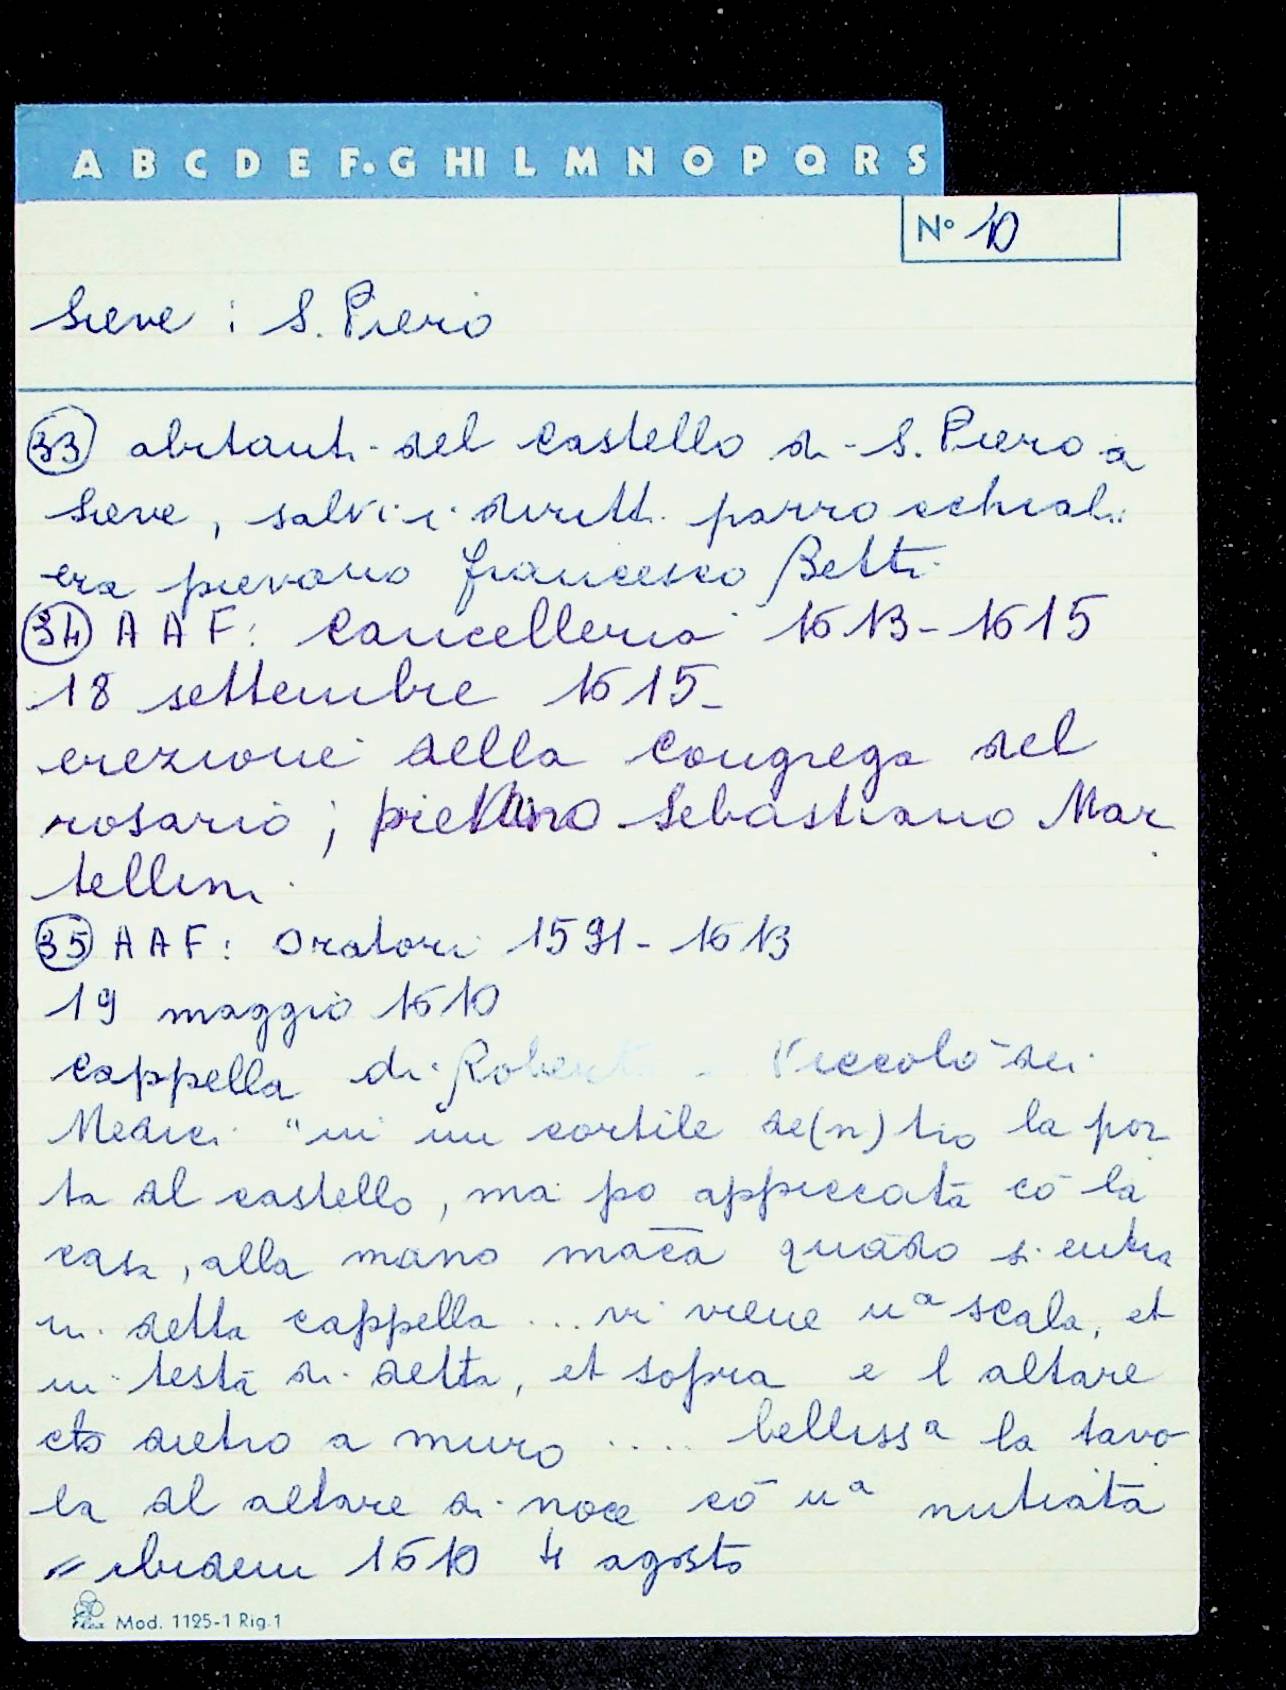 A B C D E F. G HI L M N O P Q R S
N° 10
Sieve : S. Piero
33 abitanti del castello di S. Piero a
Sieve, salvi i diritti parrocchiali:
era pievano Francesco Betti
34 A A F: Cancelleria 1613-1615
18 settembre 1615-
erezione della Congrega del
rosario; pievano Sebastiano Mar
tellini
35 A A F: Oratori 1591-1613
19 maggio 1610
cappella di Robert Niccolò dei
Medici "in un cortile de(n)tro la por
ta al castello, ma po appiccata cō la
casa, alla mano māca quādo si entra
in detta cappella ... vi viene uª scala, et
in testa di detta, et sopra e l altare
dietro a muro .... bellissª la tavo
la al altare di noce cō uª nutiata
" ibidem 1610 4 agosto
Mod. 1125-1 Rig.1